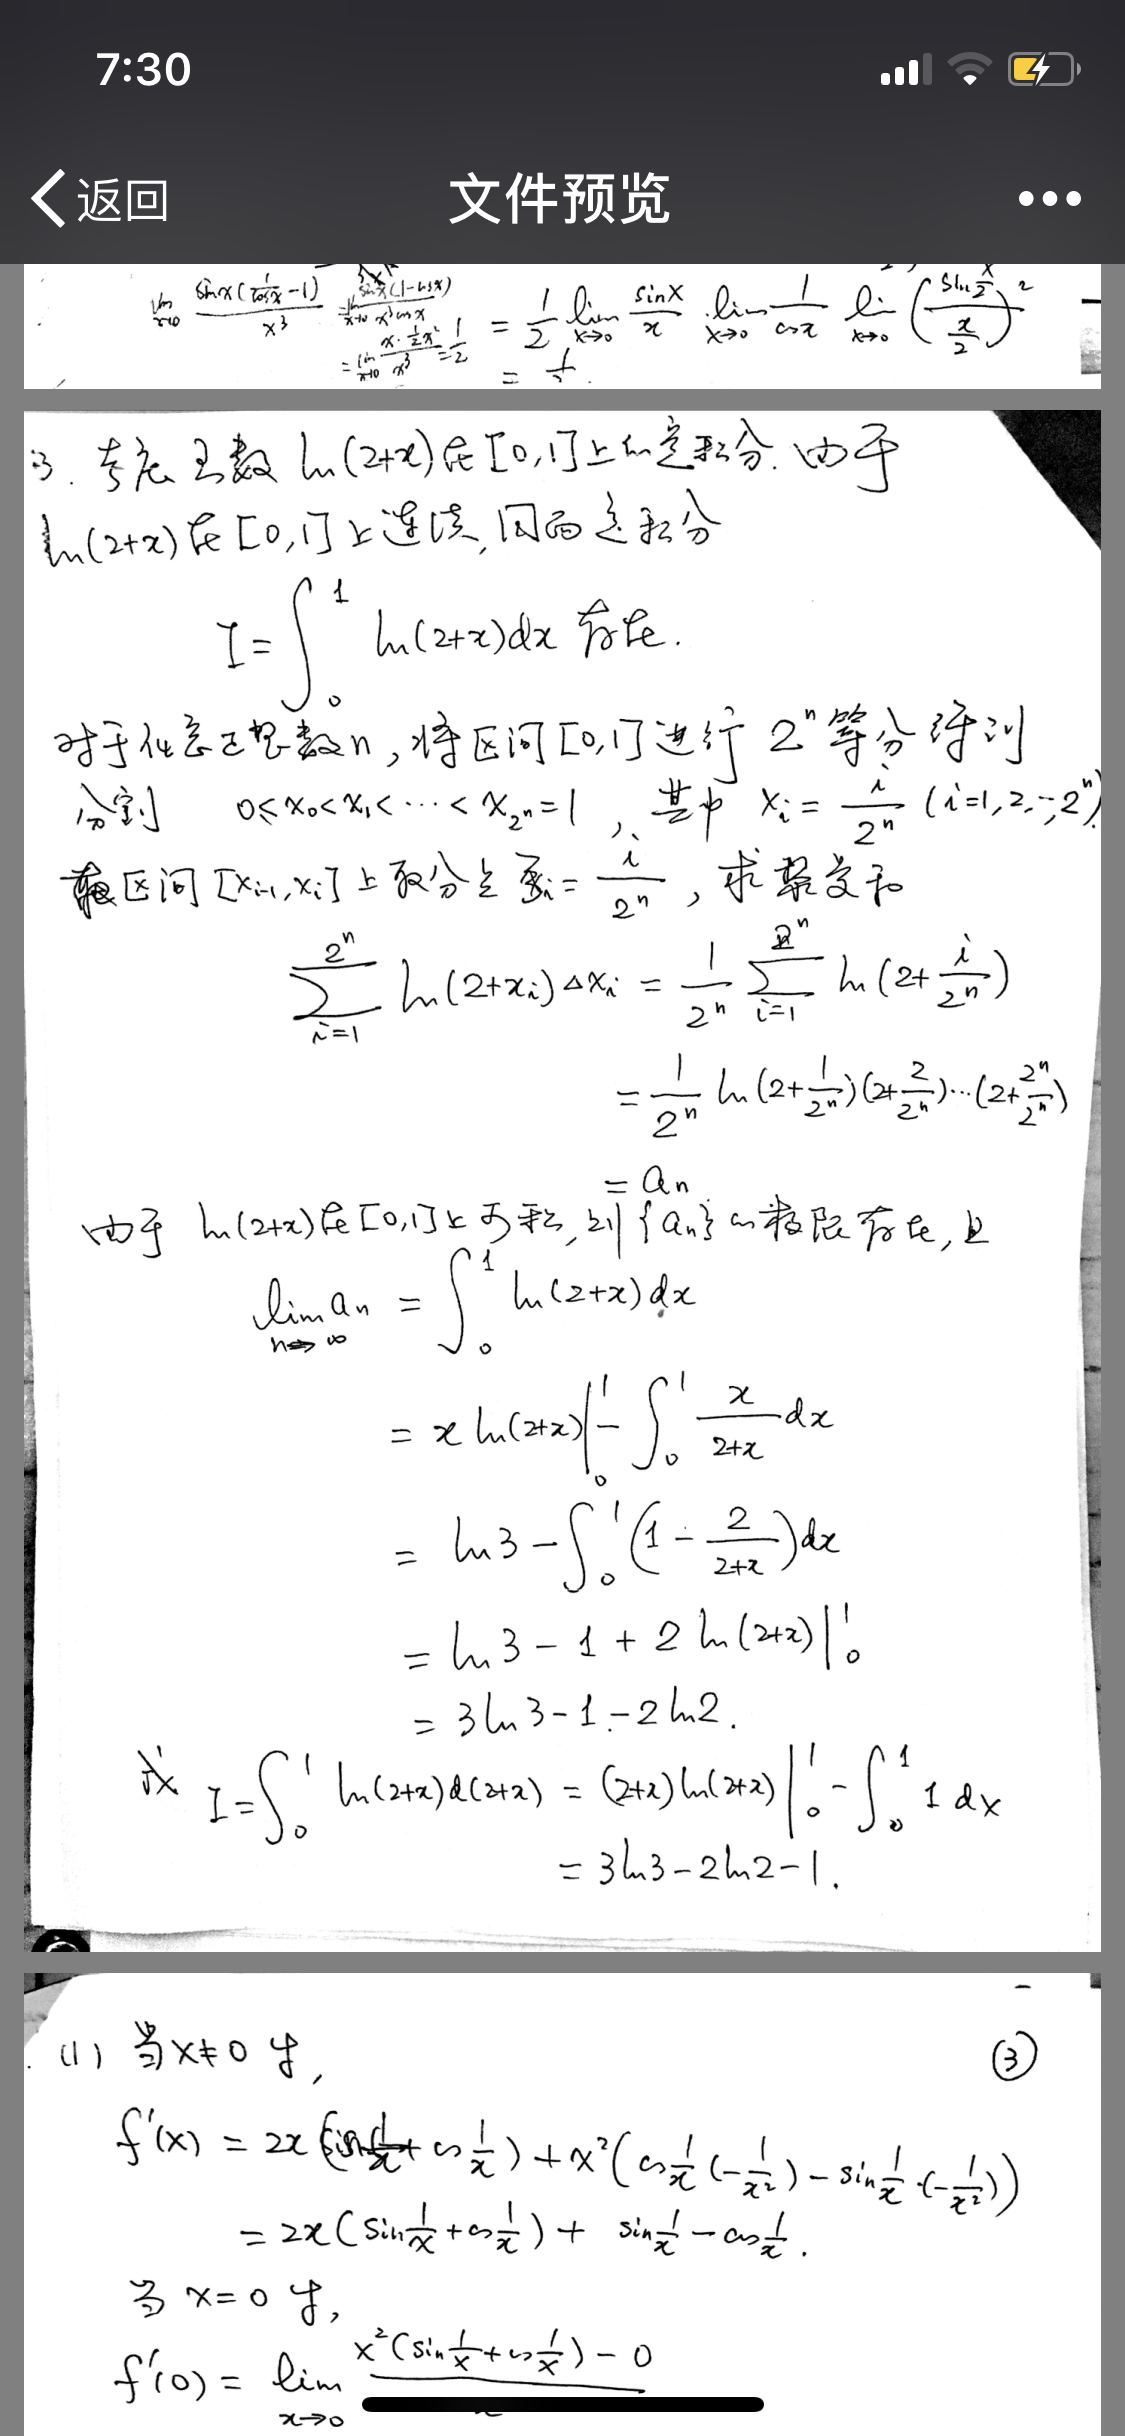 7:30
返回 文件预览 •••
lim x→0 sinx(1/cosx -1)/x³ = lim x→0 sinx(1-cosx)/x³cosx
= lim x→0 x·½x²/x³ = 1/2
= 1/2 lim x→0 sinx/x · lim x→0 1/cosx lim x→0 (sin x/2 / x/2)²
=
3. 考虑函数 ln(2+x)在[0,1]上的定积分. 由于
ln(2+x)在[0,1]上连续,因而定积分
I=∫₀¹ ln(2+x)dx 存在.
对于任意正整数n,将区间[0,1]进行2ⁿ等分得到
分割 0≤x₀<x₁<⋯<x_{2ⁿ}=1, 其中 xᵢ= i/2ⁿ (i=1,2,⋯,2ⁿ)
区间[xᵢ₋₁,xᵢ]上取分点ξᵢ= i/2ⁿ, 求黎曼和
∑_{i=1}^{2ⁿ} ln(2+xᵢ)Δxᵢ = 1/2ⁿ ∑_{i=1}^{2ⁿ} ln(2+ i/2ⁿ)
= 1/2ⁿ ln(2+1/2ⁿ)(2+2/2ⁿ)⋯(2+2ⁿ/2ⁿ)
= aₙ
由于 ln(2+x)在[0,1]上可积,则{aₙ}的极限存在,且
lim n→∞ aₙ = ∫₀¹ ln(2+x)dx
= x ln(2+x)|₀¹ - ∫₀¹ x/(2+x) dx
= ln3 - ∫₀¹ (1 - 2/(2+x))dx
= ln3 - 1 + 2 ln(2+x)|₀¹
= 3ln3 - 1 - 2ln2.
或 I=∫₀¹ ln(2+x)d(2+x) = (2+x)ln(2+x)|₀¹ - ∫₀¹ 1 dx
= 3ln3 - 2ln2 - 1.
(1) 当x≠0时, ③
f'(x) = 2x(sin 1/x + cos 1/x) + x²(cos 1/x (-1/x²) - sin 1/x ·(-1/x²))
= 2x(sin 1/x + cos 1/x) + sin 1/x - cos 1/x.
当 x=0时,
f'(0) = lim x→0 x²(sin 1/x + cos 1/x) - 0